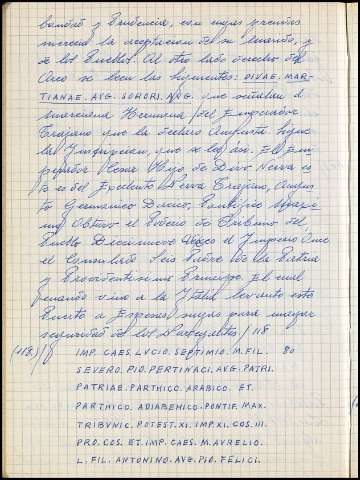 bondad y Prudencia, con cuyas prendas
merecia la aceptacion de su marido, y
de los Pueblos. Al otro lado derecho del
Arco se leen las siguientes: DIVAE. MAR-
TIANAE. AVG. SORORI. AVG. que señalan a
marciana Hermana del Emperador
Trajano que la declaro Augusta sigue
las Inscripcion, que se lee asi. El Em-
perador Cesar Hijo, de Divo Nerva is
to es del Excelente Nerva Trajano, Augus-
to Germanico Dacico, Pontifice
Obtivo el Podecio de Tribuno del
Pueblo Diecinueve el Imperio Once
el Consulado Seis Padre de la Patria
y Providentisimo Principe. El cual
cuando vino a la Italia levanto este
Puerto a Expensas suyas para mayor
seguridad de los Navegantes / 118
(118) IMP. CAES. LVCIO. SEPTIMIO. M. FIL. 80
SEVERO. PIO. PERTINACI. AVG. PATRI.
PATRIAE. PARTHICO. ARABICO. ET.
PARTHICO. ADIABEHICO. PONTIF. MAX.
TRIBVNIC. POTEST. XI. IMP. XI. COS. III.
PRO. COS. ET. IMP. CAES. M. AVRELIO.
L. FIL. ANTONINO. AVG. PIO. FELICI.